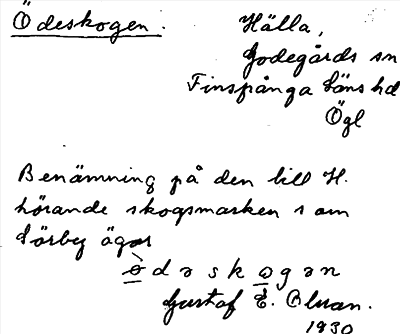 Ödeskogen.
Hälla,
Godegårds sn
Finspånga läns hd
Ögl
Benämning på den till H.
hörande skogsmarken som
Sörby äger
ö̀dəskogən
Gustaf E.
1930